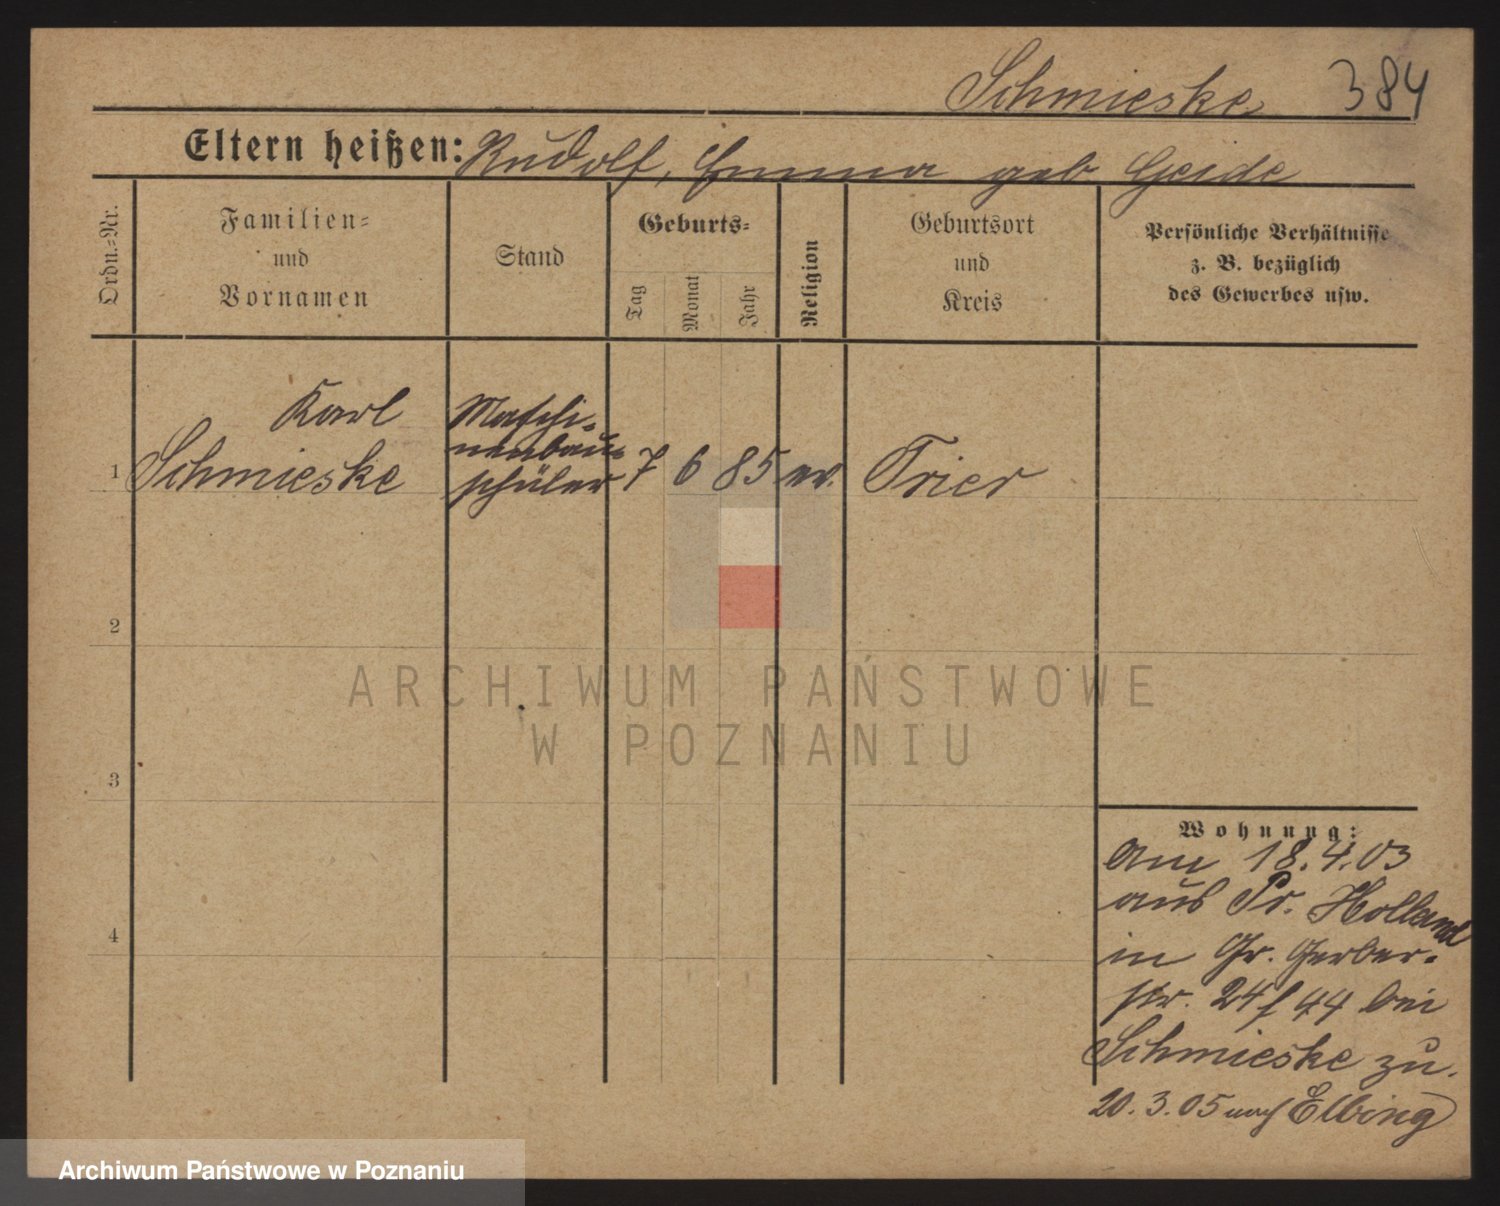 Schmieske 384
Eltern heißen: Rudolf, Emma geb Geide
Ordn.=Nr.
Familien=
und
Vornamen
Stand
Geburts=
Tag
Monat
Jahr
Religion
Geburtsort
und
Kreis
Persönliche Verhältnisse
z. B. bezüglich
des Gewerbes usw.
Karl
Schmieske
Maschi-
nenbau-
schüler
1 7 6 85 ev. Trier
2
3
4
ARCHIWUM PAŃSTWOWE
W POZNANIU
Wohnung:
am 18.4.03
aus Pr. Holland
in Gr. Gerber-
str. 24/44 bei
Schmieske zu.
20.3.05 nach Elbing
Archiwum Państwowe w Poznaniu